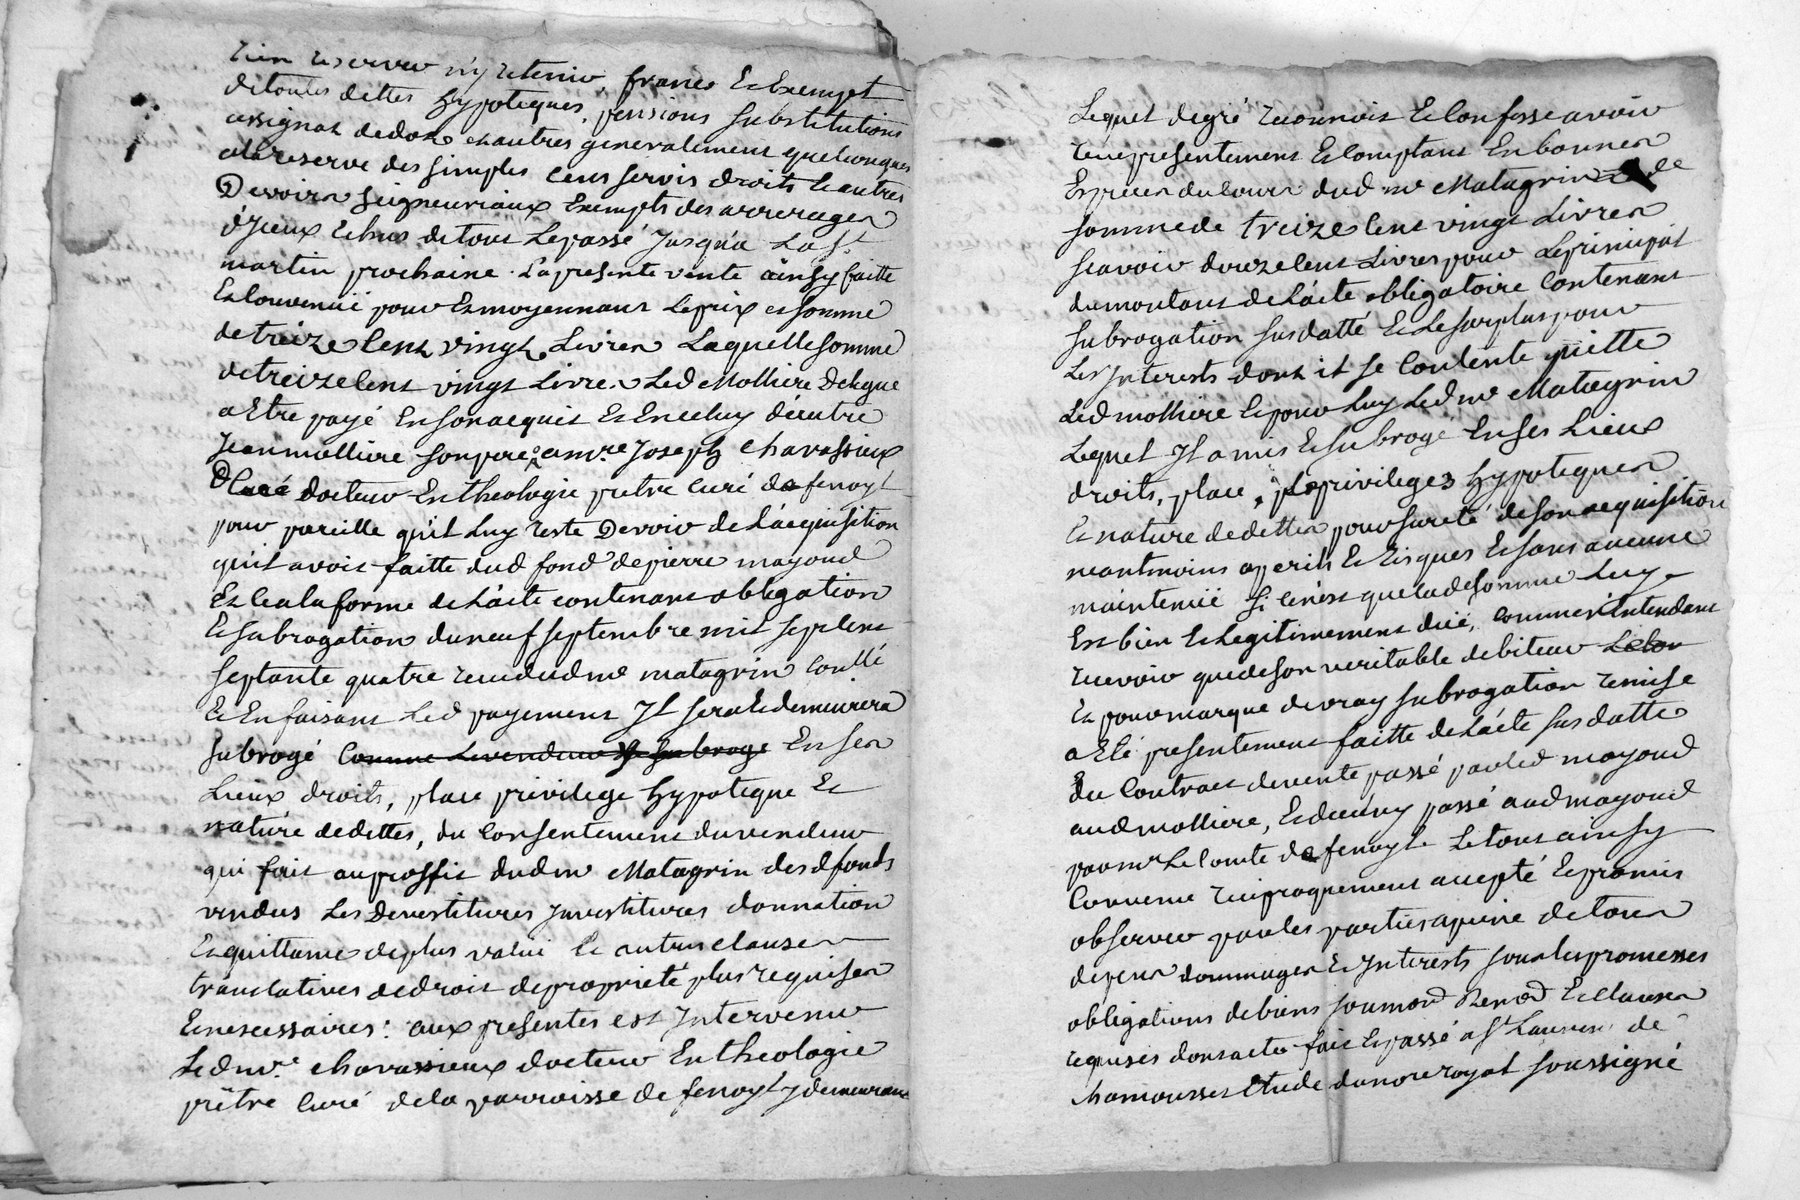 rien reserver n'y retenir, franc Et Exempt
de toutes dettes hypoteques, pensions substitutions
assignat de dot et autres generalement quelconques
a la reserve des simples cens servis droits et autres
Devoirs seigneuriaux Exempts des arrerages
d'yceux Echus de tout Le passé jusqu'a La st
martin prochaine. La presente vente ainsy faitte
Et Convenüe pour Et moyennant Le prix et somme
de treize Cent vingt Livres Laquelle somme
de treize Cent vingt Livres Led Mollière Delegue
a Etre payé En son acquit Et En celuy d'autre
Jean mollière son pere a mre Joseph Chavassieux
Docteur En theologie prêtre Curé de fenoyl
pour pareille qu'il Luy reste Devoir de L'acquisition
qu'il avoit faitte dud fond de pierre mayoud
Et Ce a la forme de L'acte contenant obligation
Et subrogation du neuf septembre mil sept Cent
septante quatre reçu dud me matagrin Conllé
Et En faisant Led payement Il sera Et demeurera
subrogé Comme Le vendeur Le subroge En ses
Lieux droits, place privilege hypoteque Et
nature de dettes, du Consentement du vendeur
qui fait au proffit dud me Matagrin desd fonds
vendus Les Devestitures Investitures donnation
Et quittance de plus value Et autres clauses
translatives de droit de proprieté plus requises
Et nescessaires: aux presentes est Intervenu
Led mre. chavassieux docteur En theologie
prêtre Curé de la parroisse de fenoyl y demeurant
Lequel de gré reconnoit Et Confesse avoir
reçu presentement Et Comptant En bonnes
Espèces du Cours dud me Matagrin de
somme de treize Cent vingt Livres
sçavoir douze Cent Livres pour Le principal
du montant de L'acte obligatoire Contenant
subrogation susdatté Et Le surplus pour
Les Interests dont il se Contente quitte
Led mollière Et pour Luy Led me Matagrin
Lequel Il a mis Et subrogé En ses Lieux
droits, place, privileges hypoteques
Et nature de dettes pour sureté de son acquisition
neantmoins a perils Et risques Et sans aucune
maintenüe si ce n'est que lade somme Luy
Est bien Et Legitimement düe, comme n'Entendant
recevoir que de son veritable debiteur
Et pour marque de vray subrogation remise
a Eté presentement faitte de L'acte susdatté
Du Contract de vente passé par led mayoud
aud mollière, Et de celuy passé aud mayoud
par mr Le Comte de fenoyl Le tout ainsy
Convenu reciproquement accepté Et promis
observer par les parties a peine de tous
depens dommages Et Interests sous les promesses
obligations de biens soumond Renond Et clauses
requises dont acte fait Et passé a st Laurent de
chamousset Etude du nore royal soussigné